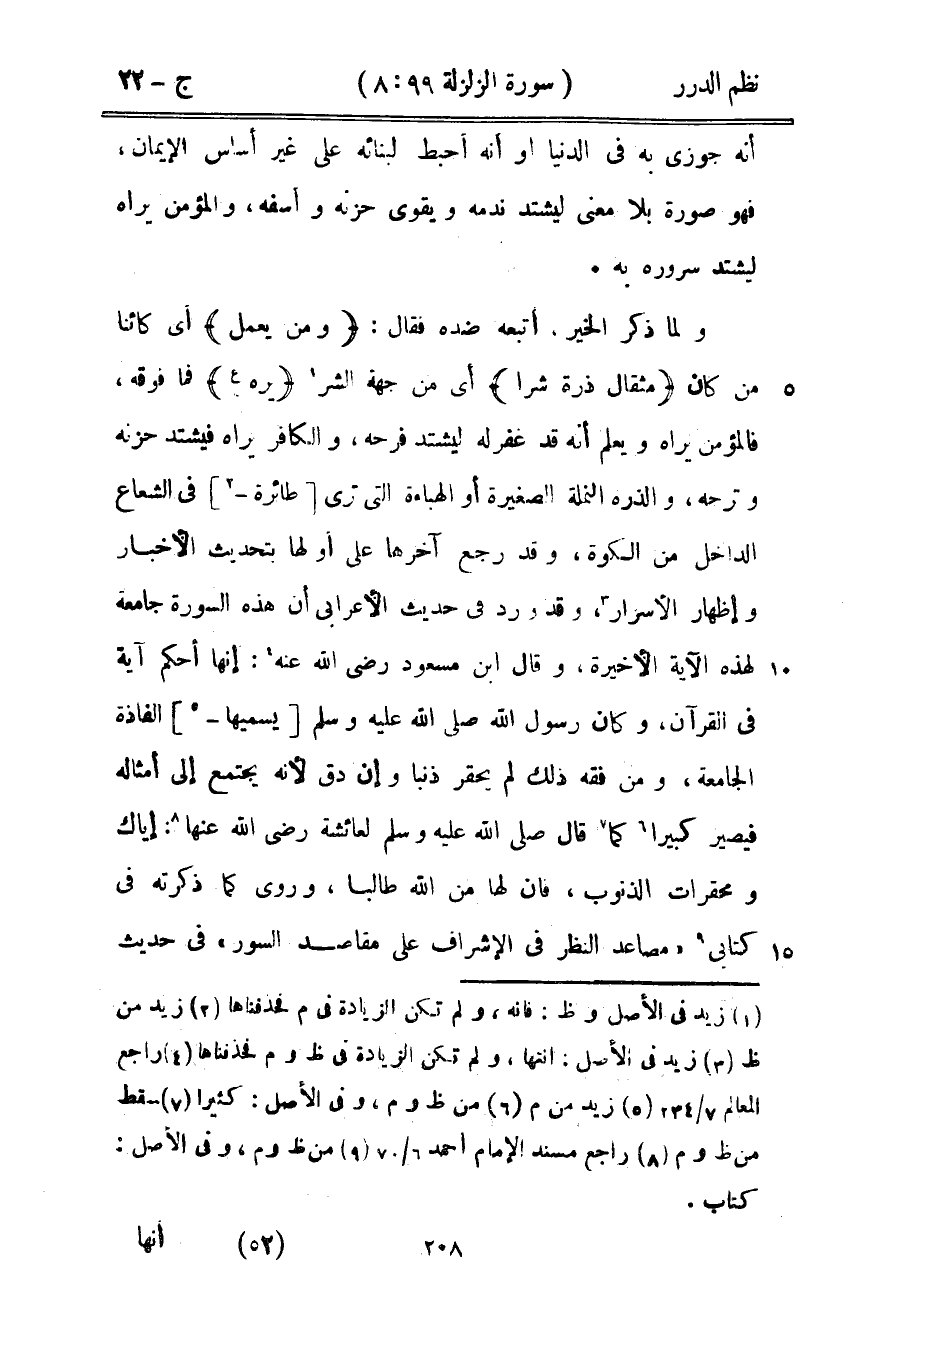 نظم الدرر ( سورة الزلزلة ٩٩ : ٨ ) ج - ٢٢
أنه جوزى به فى الدنيا او أنه أحبط لبنائه على غير أساس الإيمان ،
فهو صورة بلا معنى ليشتد ندمه و يقوى حزنه و أسفه ، و المؤمن يراه
ليشتد سروره به .
و لما ذكر الخير . أتبعه ضده فقال : ﴿ و من يعمل ﴾ أى كائنا
٥ من كان ﴿ مثقال ذرة شرا ﴾ أى من جهة الشر١ ﴿ يره ع ﴾ فما فوقه ،
فالمؤمن يراه و يعلم أنه قد غفر له ليشتد فرحه ، و الكافر يراه فيشتد حزنه
و ترحه ، و الذره النملة الصغيرة أو الهباءة التى ترى [ طائرة -٢ ] فى الشعاع
الداخل من الكوة ، و قد رجع آخرها على أولها بتحديث الأخبار
و إظهار الأسرار٣، و قد ورد فى حديث الأعرابى أن هذه السورة جامعة
١٠ لهذه الآية الأخيرة ، و قال ابن مسعود رضى الله عنه٤ : إنها أحكم آية
فى القرآن ، و كان رسول الله صلى الله عليه و سلم [ يسميها - ٥ ] الفاذة
الجامعة ، و من فقه ذلك لم يحقر ذنبا و إن دق لأنه يجتمع إلى أمثاله
فيصير كبيرا٦ كما٧ قال صلى الله عليه و سلم لعائشة رضى الله عنها٨: إياك
و محقرات الذنوب ، فان لها من الله طالبا ، و روى كما ذكرته فى
١٥ كتابى٩ « مصاعد النظر فى الإشراف على مقاصد السور » فى حديث
(١) زيد فى الأصل و ظ : فانه ، و لم تكن الزيادة فى م فحذفناها (٢) زيد من
ظ (٣) زيد فى الأصل : انتها ، و لم تكن الزيادة فى ظ و م فحذفناها (٤) راجع
المعالم ٧/ ٢٣٤ (٥) زيد من م (٦) من ظ و م ، و فى الأصل : كثيرا (٧) سقط
من ظ و م (٨) راجع مسند الإمام أحمد ٦/ ٧٠ (٩) من ظ و م ، و فى الأصل :
كتاب .
٢٠٨ (٥٢) أنها